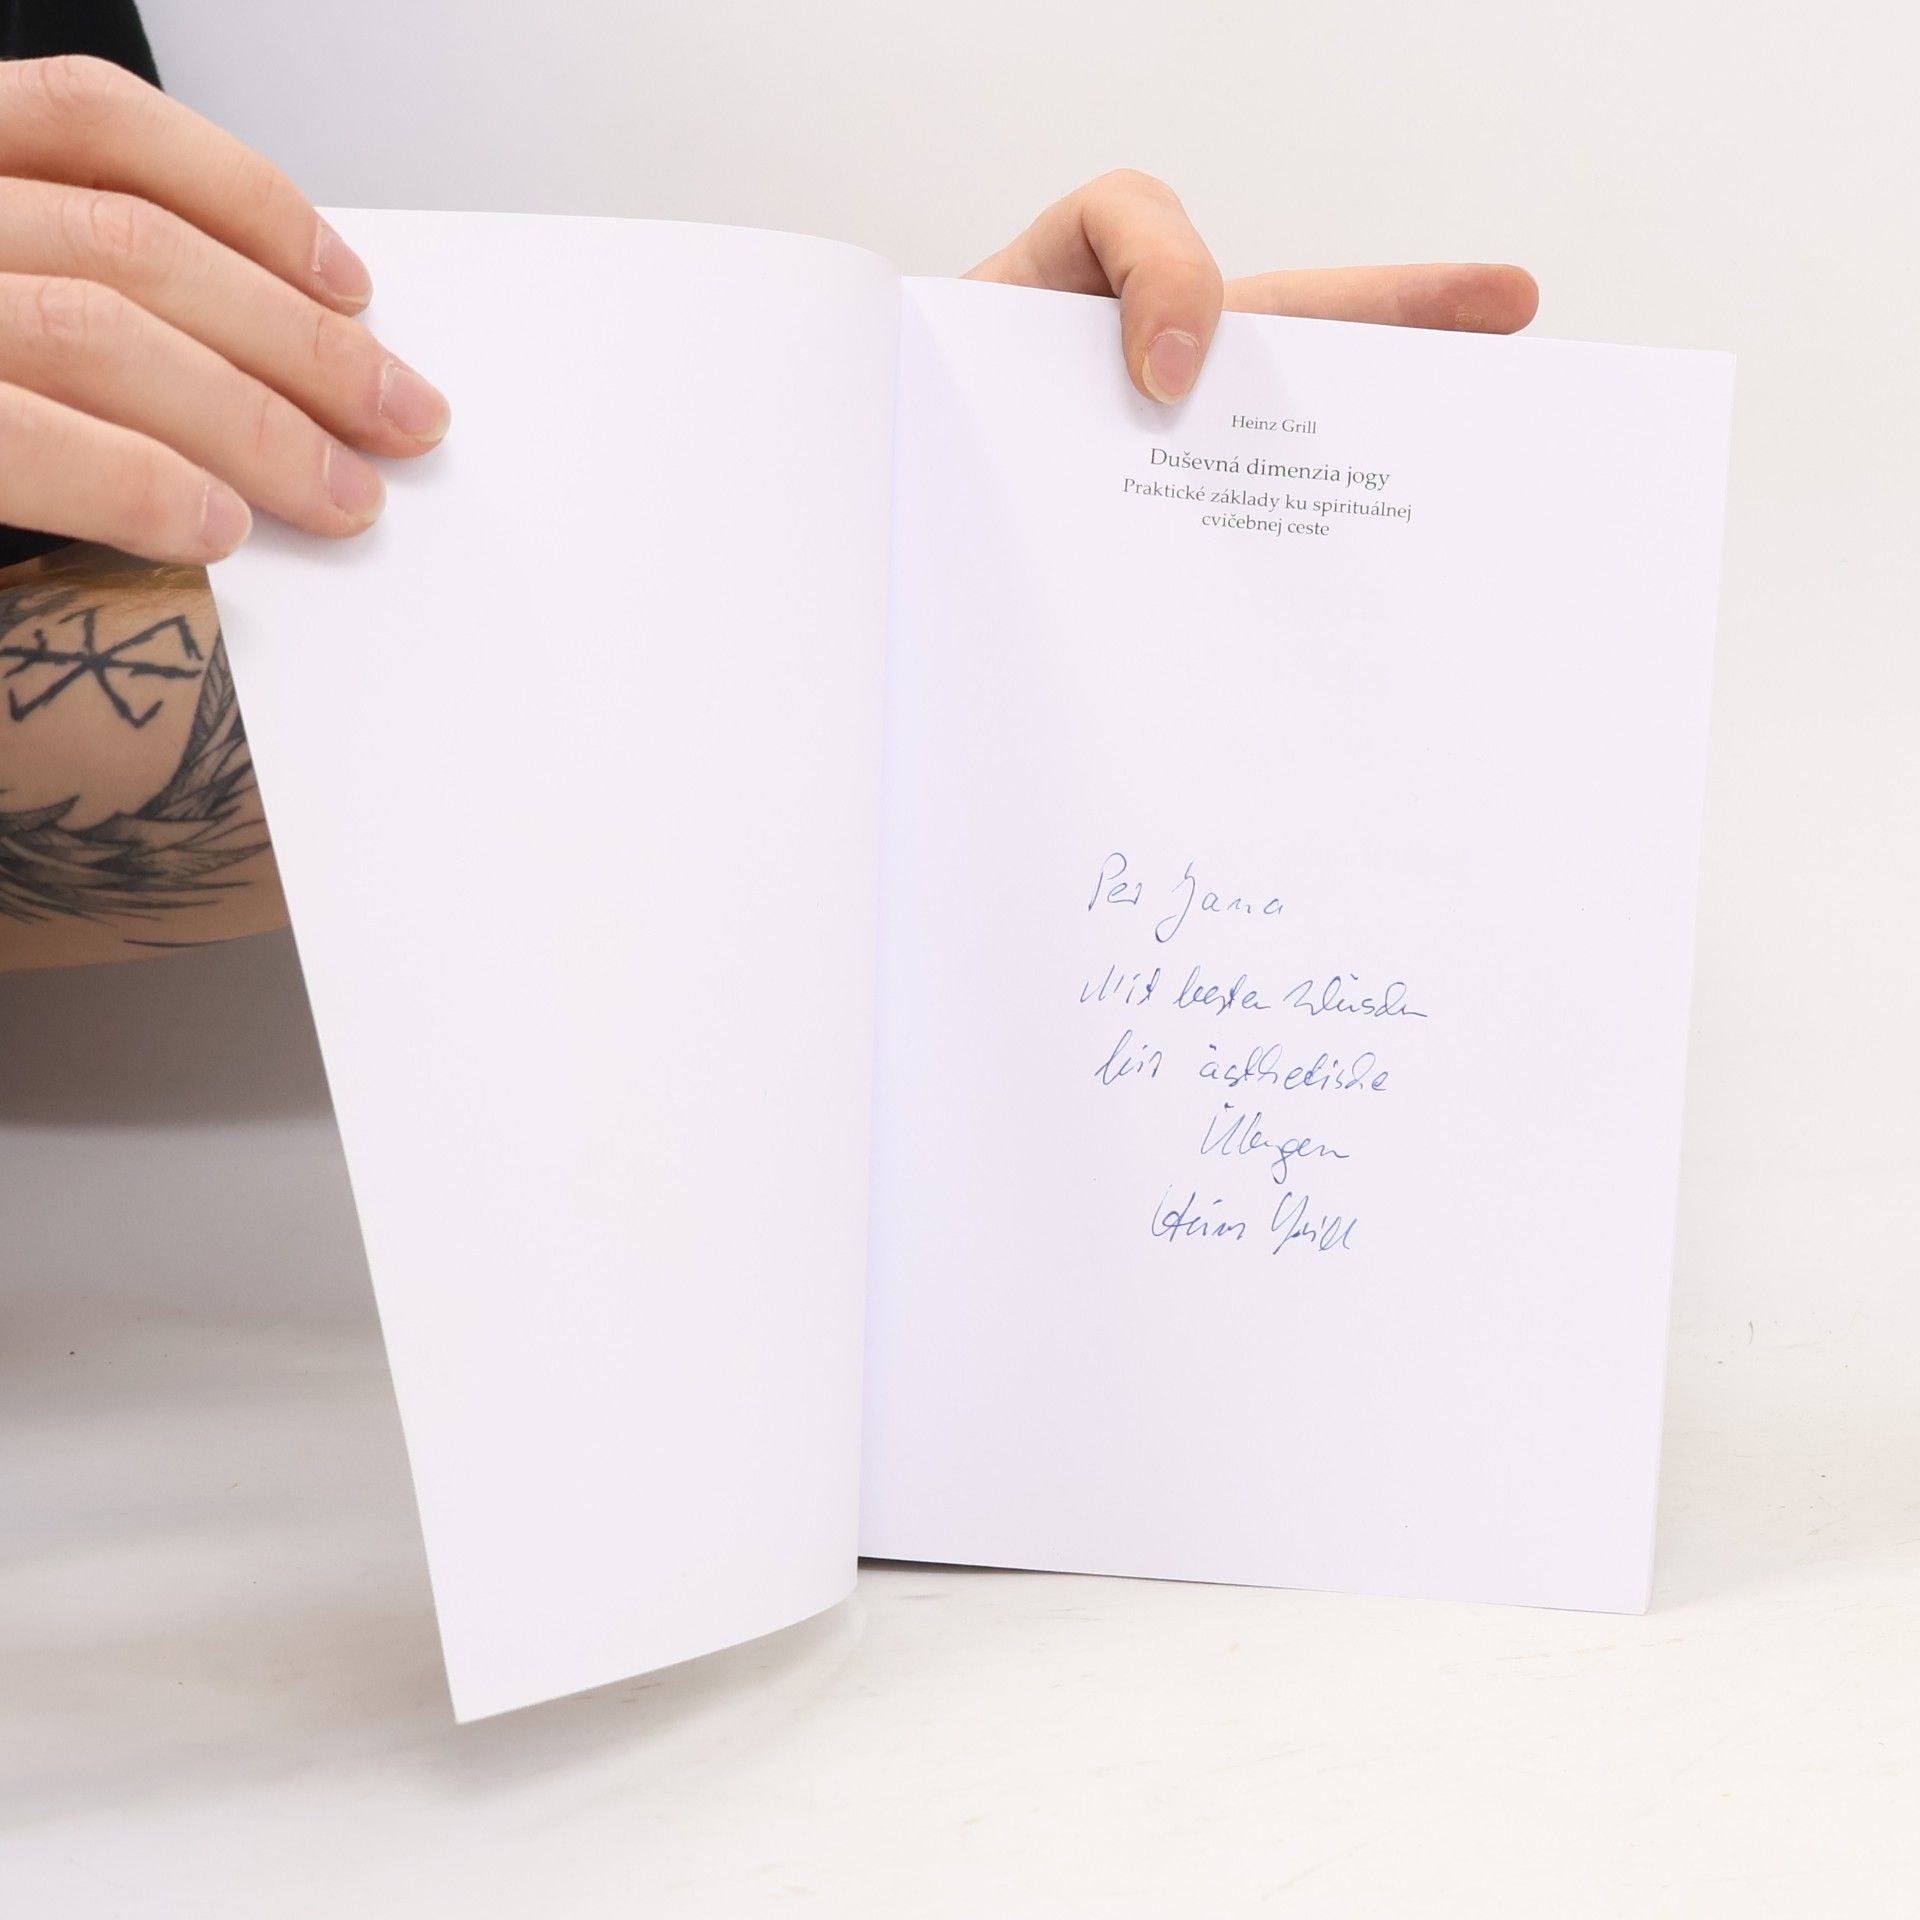 Heinz Grill
Duševná dimenzia jogy
Praktické základy ku spirituálnej
cvičebnej ceste
Per Jana
Mit besten Wünschen
für ästhetische
Übungen
Heinz Grill